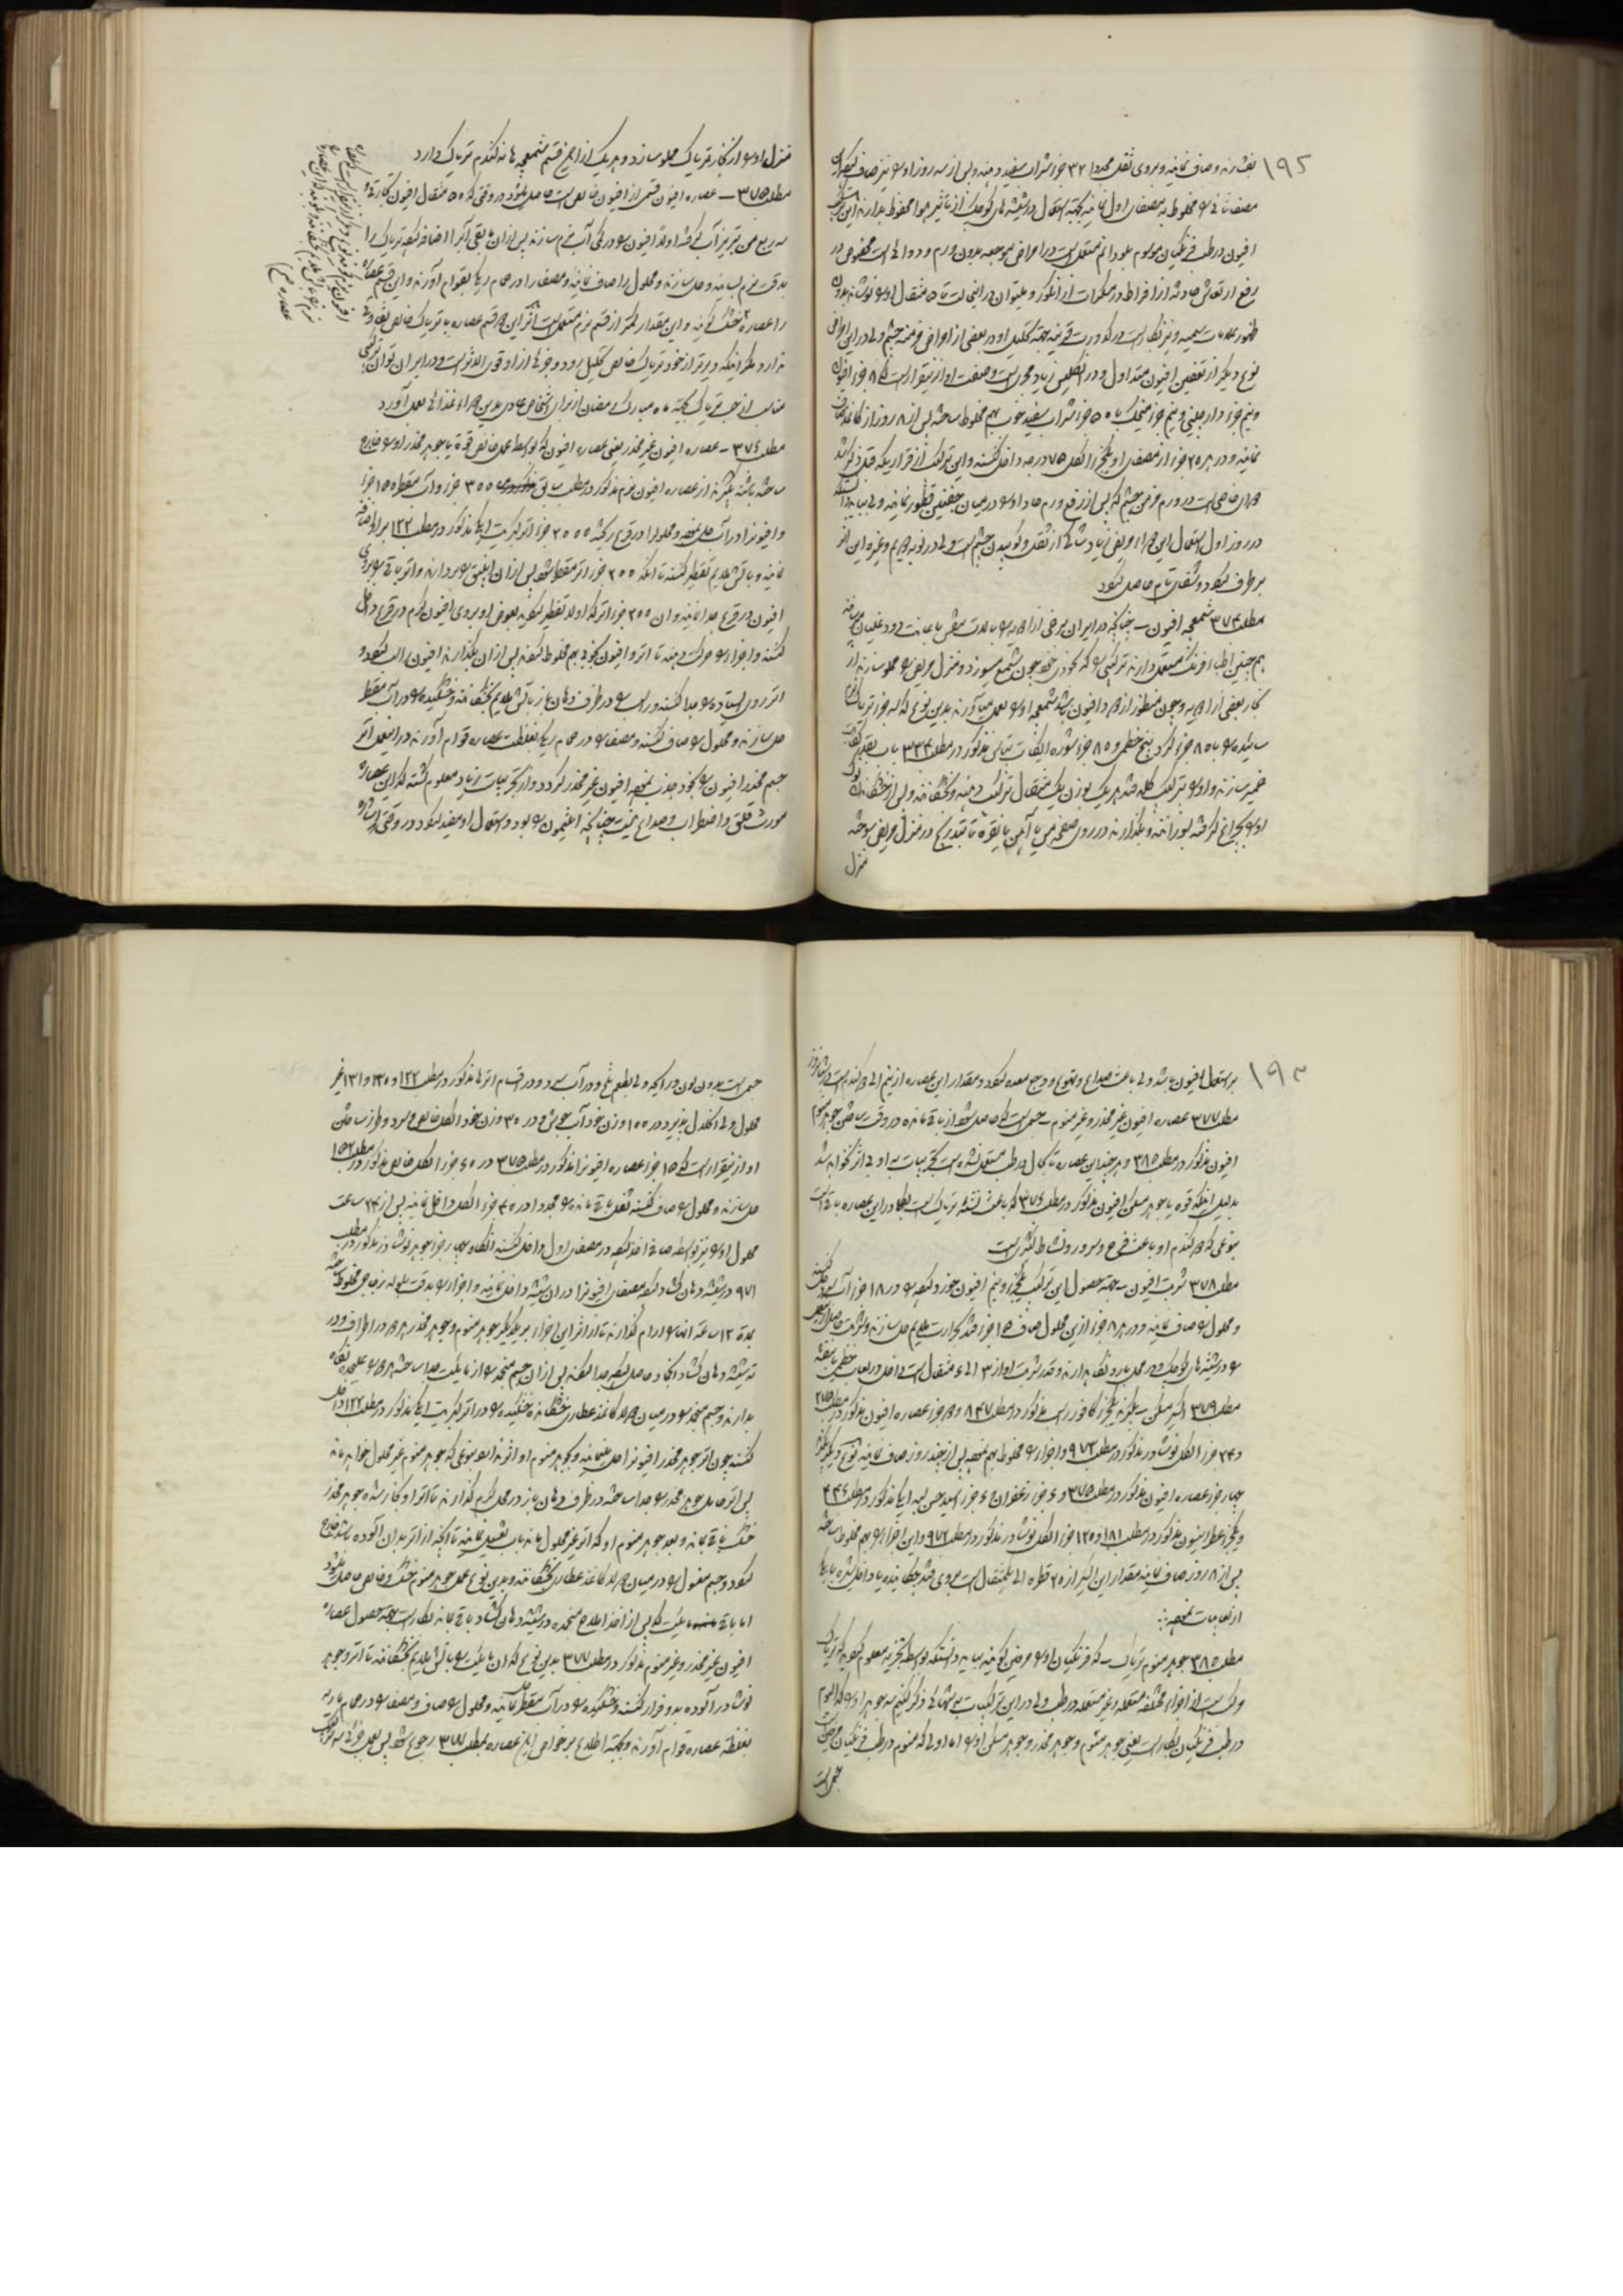 ۱۹۲
بفشارند و صاف نمایند و بروی ثقل مجددا ۳۲ جزء شراب سفید دهند و پس از سه روز او را نیز صاف
مصفای ثانی را مخلوط به مصفای اول نمایند بجهة استعمال در شیشه های کوچک از تاثیر هوا محفوظ بدارند این
افیون در طب فرنگیان موسوم به دائم مستعمل است در امراض موجعه بدون ورم و دوائی است مخصوص در
رفع ارتعاش حادثه از افراط در مسکرات از انگور و میتوان در این حالت تا ۵ مثقال او را نوشانید بدون
ظهور علامات سمیه و نیز بکار است در کدورت قرنیه بجهة تحلیل او و در بعضی از امراض مزمنه چشم ولی در این امراض
نوع دیگر از نقیعین افیون متداول و در انگلیس زیاد مجرب است و صنعت او از اینقرار است که ۸ جزء افیون
و نیم جزء دارچینی و نیم جزء میخک با ۵۰ جزء شراب سفید خوب بهم مخلوط ساخته پس از ۸ روز از کاغذ صاف
نمایند و در هر ۲۵ جزء از مصفای او یکجزء الکل ۷۵ درجه داخل کنند و این ترکیب از قراریکه قبل ذکر شد
دوای خاصی است در ورم مزمن چشم که پس از رفع ورم حاد او را در میان جفنین قطور نمایند
در روز اول استعمال این دواء مریض زیاد شاکی از ثقل و کوبیدن چشم است ولی در نوبه دویم و غیره این اثر
برطرف میگردد و شفای تام حاصل میگردد
مطلب ۳۷۴ شمعچه افیون – چنانچه در ایران برخی از ادویه را بآلات تنفس باعانت دود غلیان میرسانند
هم چنین اطباء فرنگ مستعمل دارند ترکیبی را که بخودی خود چون شمع میسوزد و منزل مریض را مملو سازند از
بخار بعضی از ادویه و چون منظور از دود افیون باشد شمعچه او را بعمل میآورند بدین نوع که سه جزء تریاک نرم
سائیده را با ۸۵ جزء گرد بیخ خطمی و ۸۵ جزء شوره مذکور در مطلب ۳۳۴ با آب بقدر کفایت
خمیر سازند و او را بترکیب کله قند هر یک بوزن یک مثقال ترکیب دهند و بخشکانند و پس از خشکیدن نوک
او را بچراغ گرفته بسوزانند و بگذارند در روی صفحه مس یا آهن یا نقره تا بتدریج در منزل مریض سوخته
منزل
منزل او را از بخار تریاک مملو سازد و هر یک از این قسم شمعچه ها نه گندم تریاک دارد
مطلب ۳۷۵ – عصاره افیون قسمی از افیون خالص است حاصل میشود در وقتی که ۵۰ مثقال افیون تجارتی
سه ربع من تبریز آب گرفته اولا افیون را در کمی آب نرم سازند پس از آن مابقی آب را اضافه نموده تریاک را
بدقت نرم بسایند و حل سازند و محلول را صاف نمایند و مصفا را در حمام ریگ بقوام آورند و این قسم عصاره
را عصاره خشک گویند و این مقدار کمتر از قسم نرم مستعمل است اثر این دو قسم عصاره با تریاک خالص تفاوتی
ندارد مگر اینکه دیرتر از خود تریاک خالص بتحلیل رود و جزئی از او قوی الاثر است و در ایران توان ترکیبی
مناسب از حب تریاک بجهة ماه مبارک رمضان از برای اشخاص عادی بدین دواء غذائی بعمل آورد
مطلب ۳۷۶ – عصاره افیون غیر مخدر یعنی عصاره افیون که بواسطه عمل خالص قوه یا جوهر مخدر او را خارج
ساخته باشند بگیرند از عصاره افیون نرم مذکور در مطلب سابق ۳۰۰ جزء و آب مقطر ۱۵۰ جزء
و افیون را در آب حل نموده و محلول را در قرع ریخته ۲۰۰۰ جزء اتر کبریت ایکا مذکور در مطلب ۱۲۲ بر او اضافه
نمایند و بآتش ملایم تقطیر کنند تا آنکه ۲۰۰ جزء اتر مقطر شود پس از آن انبیق را بردارند و اتر باقی را بروی
افیون در قرع جدا نمایند و آن ۲۰۰ جزء اتر که اولا تقطیر گردیده بعوض او بروی افیون گرم در قرع داخل
کنند و اجزاء را حرکت دهند تا اتر و افیون بخوبی بهم مخلوط کردند پس از آن بگذارند افیون راسب گردد و
اتر روی ایستاده را جدا کنند و راسب را در ظرف دهان باز بآتش ملایم بخشکانند و خشکیده را در آب مقطر
حل سازند و محلول را صاف کنند و مصفا را در حمام ریگ بغلظت عصاره قوام آورند در این عمل اتر
جسم مخدر افیون را بخود جذب نموده افیون غیر مخدر گردد و از تجربیات زیاد معلوم گشته که این عصاره
مورث قلق و اضطراب و صداع نیست چنانچه افیون را بود و استعمال او مفید میگردد در وقتی که
عصاره نرم
۱۹۳
بر استعمال افیون باشد ولی باعث صداع و تهوع و وجع معده میگردد و مقدار این عصاره از نیم الی دو گندم است در شبانه روز
مطلب ۳۷۷ عصاره افیون غیر مخدر و غیر منوم – جسمی است که حاصل میشود از باقی مانده در وقت ساختن جوهر منوم
افیون مذکور در مطلب ۳۸۵ و هر چند این عصاره تا بحال در طب مستعمل نشده است تجربیات به او بی اثر نخواهد شد
بدلیل اینکه قوه یا جوهر مسکن افیون مذکور در مطلب ۳۷۶ که باعث نشئه تریاک است بطلا در این عصاره باقی است
بنوعی که دو گندم او باعث فرح و سرور و نشاط کثیر است
مطلب ۳۷۸ شربت افیون – بجهة حصول این ترکیب یکجزء و نیم افیون خورد نموده را در ۱۸ جزء آب حل کنند
و محلول را صاف نمایند و در هر ۸ جزء از این محلول صاف ۱۵ جزء قند بحرارت ملایم حل سازند و شربت حاصل
را در شیشه های کوچک و در محل بارد نگاه بدارند و قدر شربت او از ۳ الی ۴ مثقال است داخل در لعاب خطمی یا بنفشه
مطلب ۳۷۹ اکسیر مسکن – بگیرند یکجزء کافور راسب مذکور در مطلب ۸۴۷ و دو جزء عصاره افیون مذکور در مطلب ۳۷۵
و ۲۴ جزء الکل نوشادر مذکور در مطلب ۹۷۳ و اجزاء را مخلوط بهم نموده پس از چند روز صاف نمایند نوع دیگر بگیرند
چهار جزء عصاره افیون مذکور در مطلب ۳۷۵ و ۶ جزء زعفران و ۶ جزء اسید حسن لبه ایکا مذکور در مطلب ۴۴۶
و یکجزء عطر انیسون مذکور در مطلب ۱۸۱ و ۱۲۵ جزء الکل نوشادر مذکور در مطلب ۹۷۲ و این اجزاء را بهم مخلوط ساخته
پس از ۸ روز صاف نمایند مقدار این اکسیر از ۲۰ قطره الی یکمثقال است بروی قند چکانیده یا داخل شربت یا
از لعابات نموده
مطلب ۳۸۵ جوهر منوم تریاک – که فرنگیان او را مرفین گویند بباید دانست که بواسطه تجزیه معلوم گردیده که تریاک
مرکب است از اجزاء مختلفه مستعمله و غیر مستعمله در طب ولی در این ترکیبات به تنهائی ذکر کنیم سه جوهر او را که الیوم
در طب فرنگیان بکار است یعنی جوهر منوم و جوهر مخدر و جوهر مسکن او را اما اولی که منوم در طب فرنگیان مرفین است
جسمی است
جسمی است بدون لون و رایحه ولی بطعم تلخ و در آب سرد و در اقسام اترها مذکور در مطلب ۱۲۲ و ۱۳۰ و ۱۳۱ غیر
محلول ولی انحلال پذیرد در ۱۰۰ وزن خود آب جوش و در ۳۰ وزن خود الکل خالص سرد و طرز ساختن
او از اینقرار است که ۱۵ جزء عصاره افیون را مذکور در مطلب ۳۷۵ در ۶۰ جزء الکل خالص مذکور در مطلب
حل سازند و محلول را صاف کنند ثقل باقی مانده را مجددا در ۴۰ جزء الکل داخل نمایند پس از ۲۴ ساعت
محلول او را نیز بواسطه صافی اخذ نموده در مصفای اول داخل کنند آنگاه چهار جزء جوهر نوشادر مذکور در مطلب
۹۷۱ در شیشه دهان گشاد نموده مصفای افیون را در آن شیشه داخل نمایند و اجزاء را بدقت بلوله زجاجی مخلوط ساخته
بمدة ۱۲ ساعة آنها را آرام گذارند تا از اثر این اجزاء بر یکدیگر جوهر منوم و جوهر مخدر هر دو در اطراف و در
ته شیشه دهان گشاد انجماد حاصل نموده جدا گردند پس از آن جسم منجمد را از مایعیت جدا ساخته هر دو را علیحده نگاه
بدارند و جسم منجمد را در میان دو لا کاغذ عطاری خشکانده خشکیده را در اتر کبریت ایکا مذکور در مطلب ۱۲۲ داخل
کنند چون اتر جوهر مخدر افیون را حل مینماید و بجوهر منوم او اثر ندارد بنوعی که جوهر منوم غیر محلول خواهد ماند
پس اتر حامل جوهر مخدر را جدا ساخته در ظرف دهان باز در محل گرم گذارند تا اتر او بخار شده جوهر مخدر
خشک باقی بماند و بعد جوهر منوم او که اتر غیر محلول ماند بآب بشویند تا آنچه از اتر بدان آلوده باشد خارج
گردد و جسم مغسول را در میان دو لا کاغذ عطاری بخشکانند و بدین نوع عمل جوهر منوم خشک و خالص حاصل میشود
اما باقی مایعیت که پس از اخذ املاح منجمده در شیشه دهان گشاد باقی ماند بکار است بجهة حصول عصاره
افیون غیر مخدر و غیر منوم مذکور در مطلب ۳۷۷ بدین نوع که آن مایعیت را بآتش ملایم بخشکانند تا اتر و جوهر
نوشادر آلوده بدو فرار کنند و خشکیده را در آب مقطر حل نمایند و محلول را صاف و مصفا را در حمام ماریه
بغلظة عصاره قوام آورند و بجهة اطلاع بر خواص این عصاره بمطلب ۳۷۷ رجوع شود